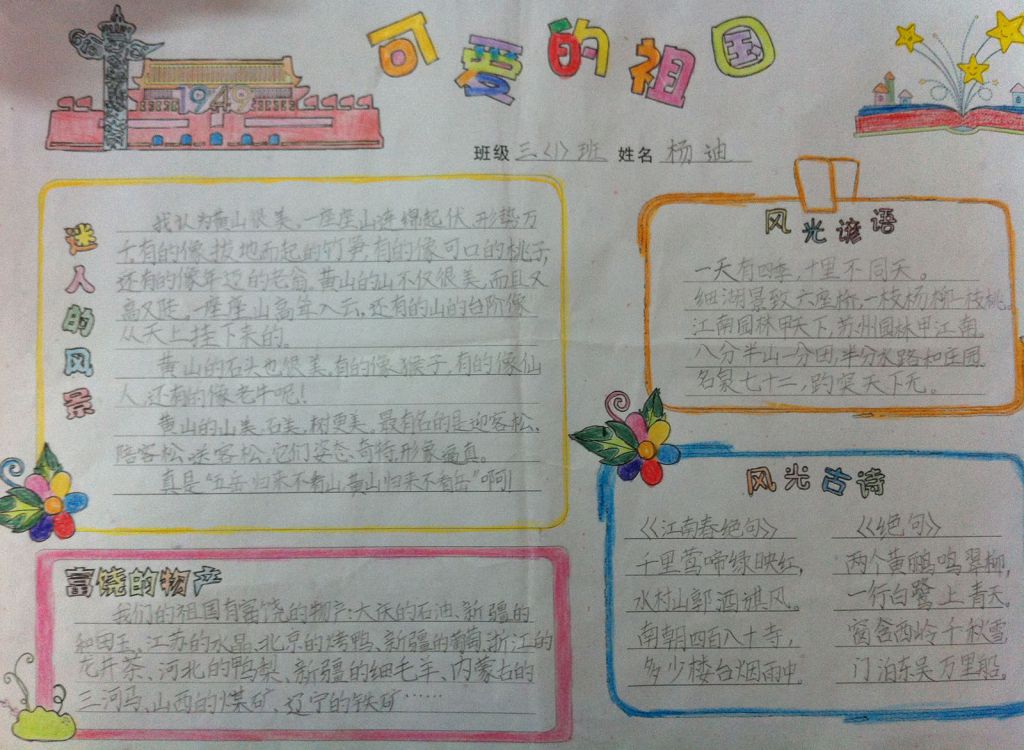 可爱的祖国
1949
班级 三〈1〉班 姓名 杨迪
迷人的风景
我认为黄山很美,一座座山连绵起伏,形势万
千,有的像拔地而起的竹笋,有的像可口的桃子,
还有的像年迈的老翁。黄山的山不仅很美,而且又
高又陡,一座座山高耸入云,还有的山的台阶像
从天上挂下来的。
黄山的石头也很美,有的像猴子,有的像仙
人,还有的像老牛呢!
黄山的山美、石美,树更美,最有名的是迎客松,
陪客松,送客松,它们姿态、奇特,形象逼真。
真是“五岳归来不看山,黄山归来不看岳”啊!
富饶的物产
我们的祖国有富饶的物产:大庆的石油、新疆的
和田玉、江苏的水晶、北京的烤鸭、新疆的葡萄、浙江的
龙井茶、河北的鸭梨、新疆的细毛羊、内蒙古的
三河马、山西的煤矿、辽宁的铁矿……
风光谚语
一天有四季,十里不同天。
细湖景致六座桥,一枝杨柳一枝桃。
江南园林甲天下,苏州园林甲江南。
八分半山一分田,半分水路和庄园。
名泉七十二,趵突天下无。
风光古诗
《江南春绝句》
千里莺啼绿映红,
水村山郭酒旗风。
南朝四百八十寺,
多少楼台烟雨中。
《绝句》
两个黄鹂鸣翠柳,
一行白鹭上青天。
窗含西岭千秋雪,
门泊东吴万里船。